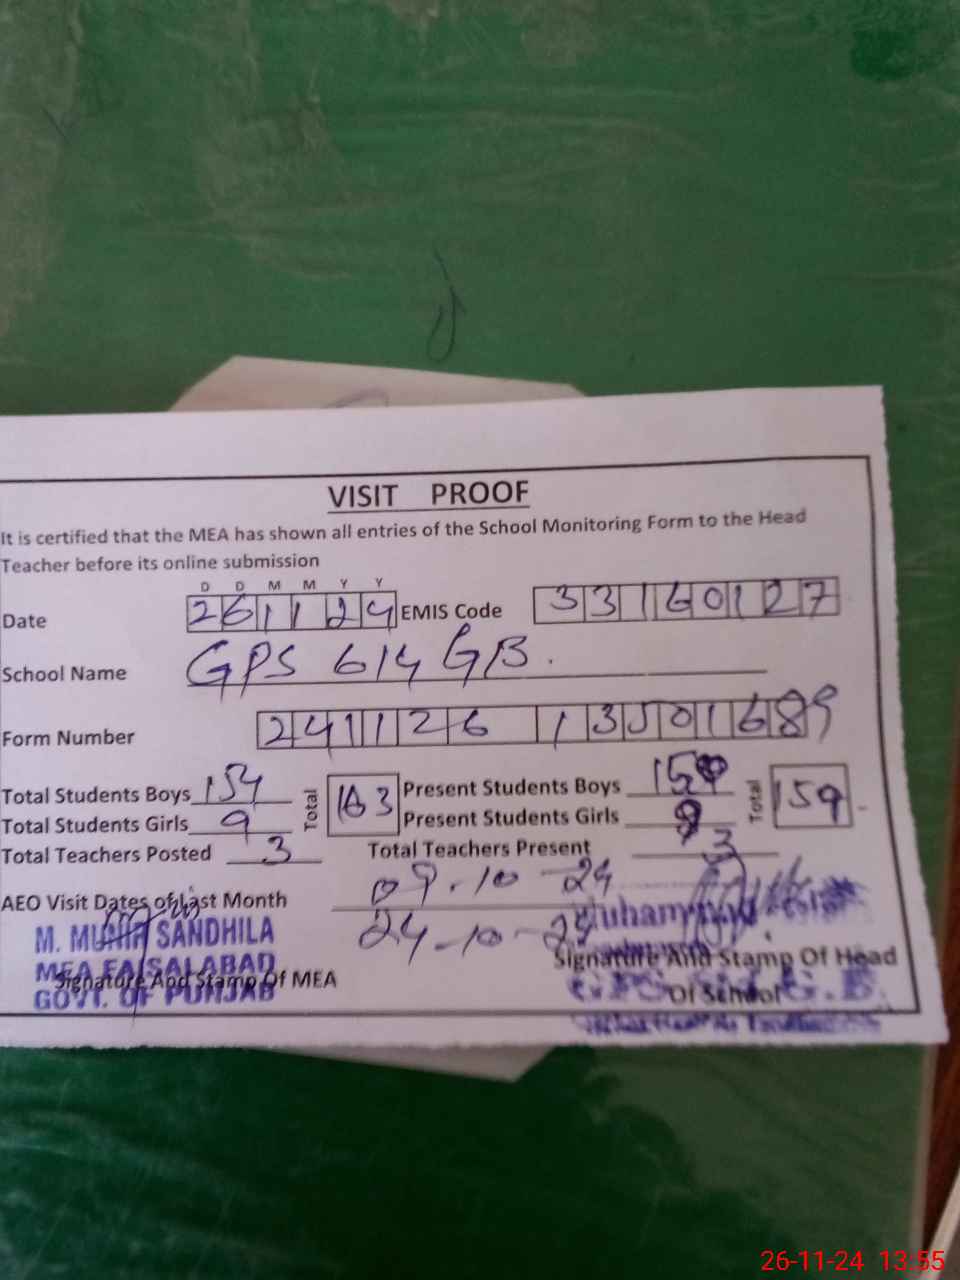 VISIT PROOF
It is certified that the MEA has shown all entries of the School Monitoring Form to the Head
Teacher before its online submission
D D M M Y Y
Date 261124 EMIS Code 33160127
School Name GPS 614 GB.
Form Number 241126 13501689
Total Students Boys 154 Total 163 Present Students Boys 150 Total 159
Total Students Girls 9 Present Students Girls 9
Total Teachers Posted 3 Total Teachers Present 3
AEO Visit Dates of Last Month 09-10-24
24-10-24
M. MUNIR SANDHILA
MEA FAISALABAD
GOVT. OF PUNJAB
Signature And Stamp Of MEA
Muhammad
Signature And Stamp Of Head
Of School
G.B.
26-11-24 13:55